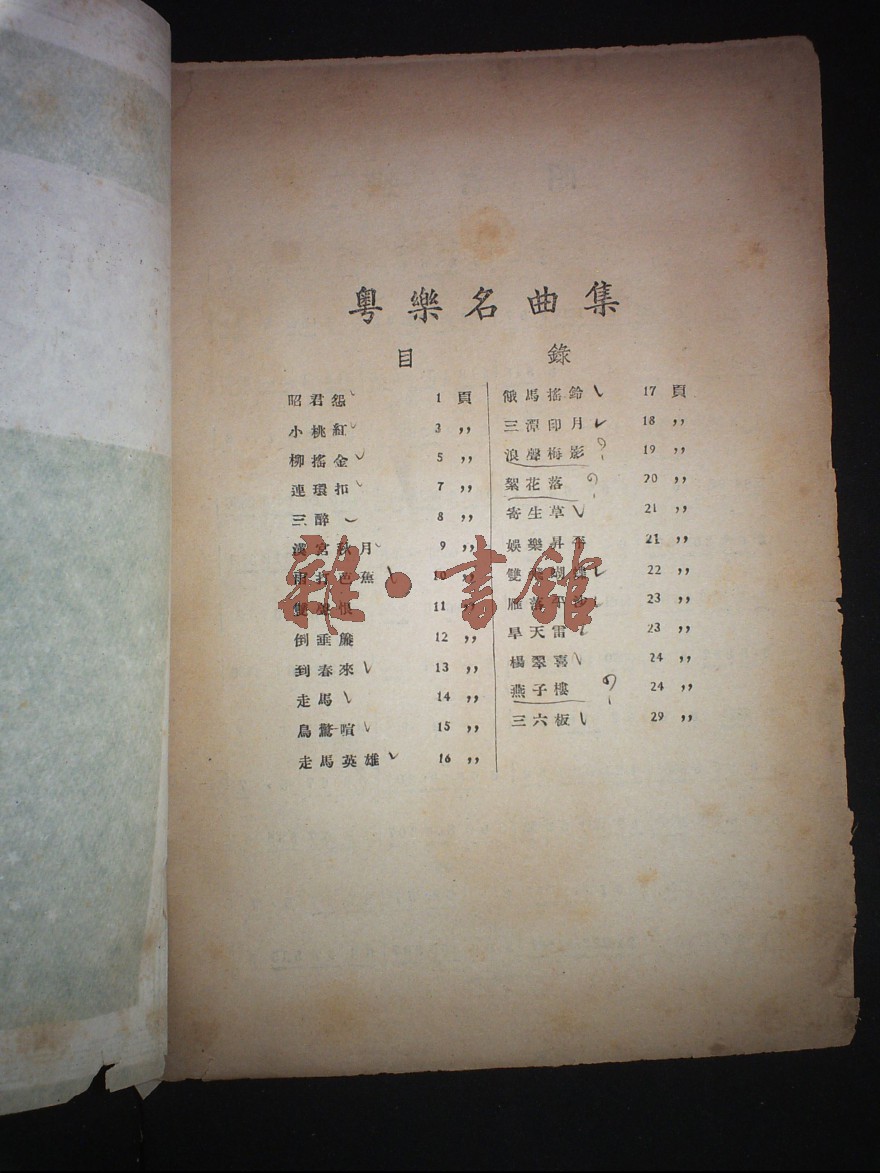 粵樂名曲集
目 錄
昭君怨 1 頁
小桃紅 3 ,,
柳搖金 5 ,,
連環扣 7 ,,
三醉 8 ,,
漢宮秋月 9 ,,
雨打芭蕉 10 ,,
雙聲恨 11 ,,
倒垂簾 12 ,,
到春來 13 ,,
走馬 14 ,,
鳥驚喧 15 ,,
走馬英雄 16 ,,
餓馬搖鈴 17 頁
三潭印月 18 ,,
浪聲梅影 19 ,,
絮花落 20 ,,
寄生草 21 ,,
娛樂昇平 21 ,,
雙飛蝴蝶 22 ,,
雁落平沙 23 ,,
旱天雷 23 ,,
楊翠喜 24 ,,
燕子樓 24 ,,
三六板 29 ,,
雜·書館